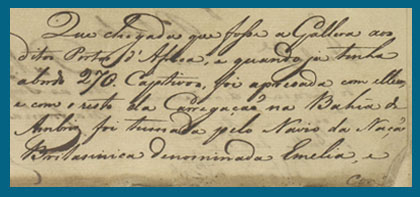 Que chegada que fosse a Gallera aos
ditos Portos d'Africa, e quando já tinha
a bordo 270 Captivos, foi aprezada com elles,
e com o resto da Carregação na Bahia de
Ambriz foi tumada pelo Navio da Nação
Britasinica denominada Emelia, e